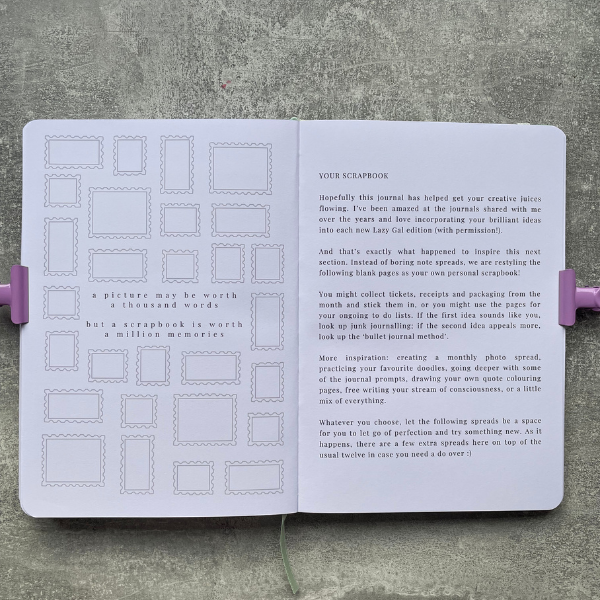 a picture may be worth
a thousand words
but a scrapbook is worth
a million memories
YOUR SCRAPBOOK
Hopefully this journal has helped get your creative juices
flowing. I've been amazed at the journals shared with me
over the years and love incorporating your brilliant ideas
into each new Lazy Gal edition (with permission!).
And that's exactly what happened to inspire this next
section. Instead of boring note spreads, we are restyling the
following blank pages as your own personal scrapbook!
You might collect tickets, receipts and packaging from the
month and stick them in, or you might use the pages for
your ongoing to do lists. If the first idea sounds like you,
look up junk journalling; if the second idea appeals more,
look up the 'bullet journal method'.
More inspiration: creating a monthly photo spread,
practicing your favourite doodles, going deeper with some
of the journal prompts, drawing your own quote colouring
pages, free writing your stream of consciousness, or a little
mix of everything.
Whatever you choose, let the following spreads be a space
for you to let go of perfection and try something new. As it
happens, there are a few extra spreads here on top of the
usual twelve in case you need a do over :)